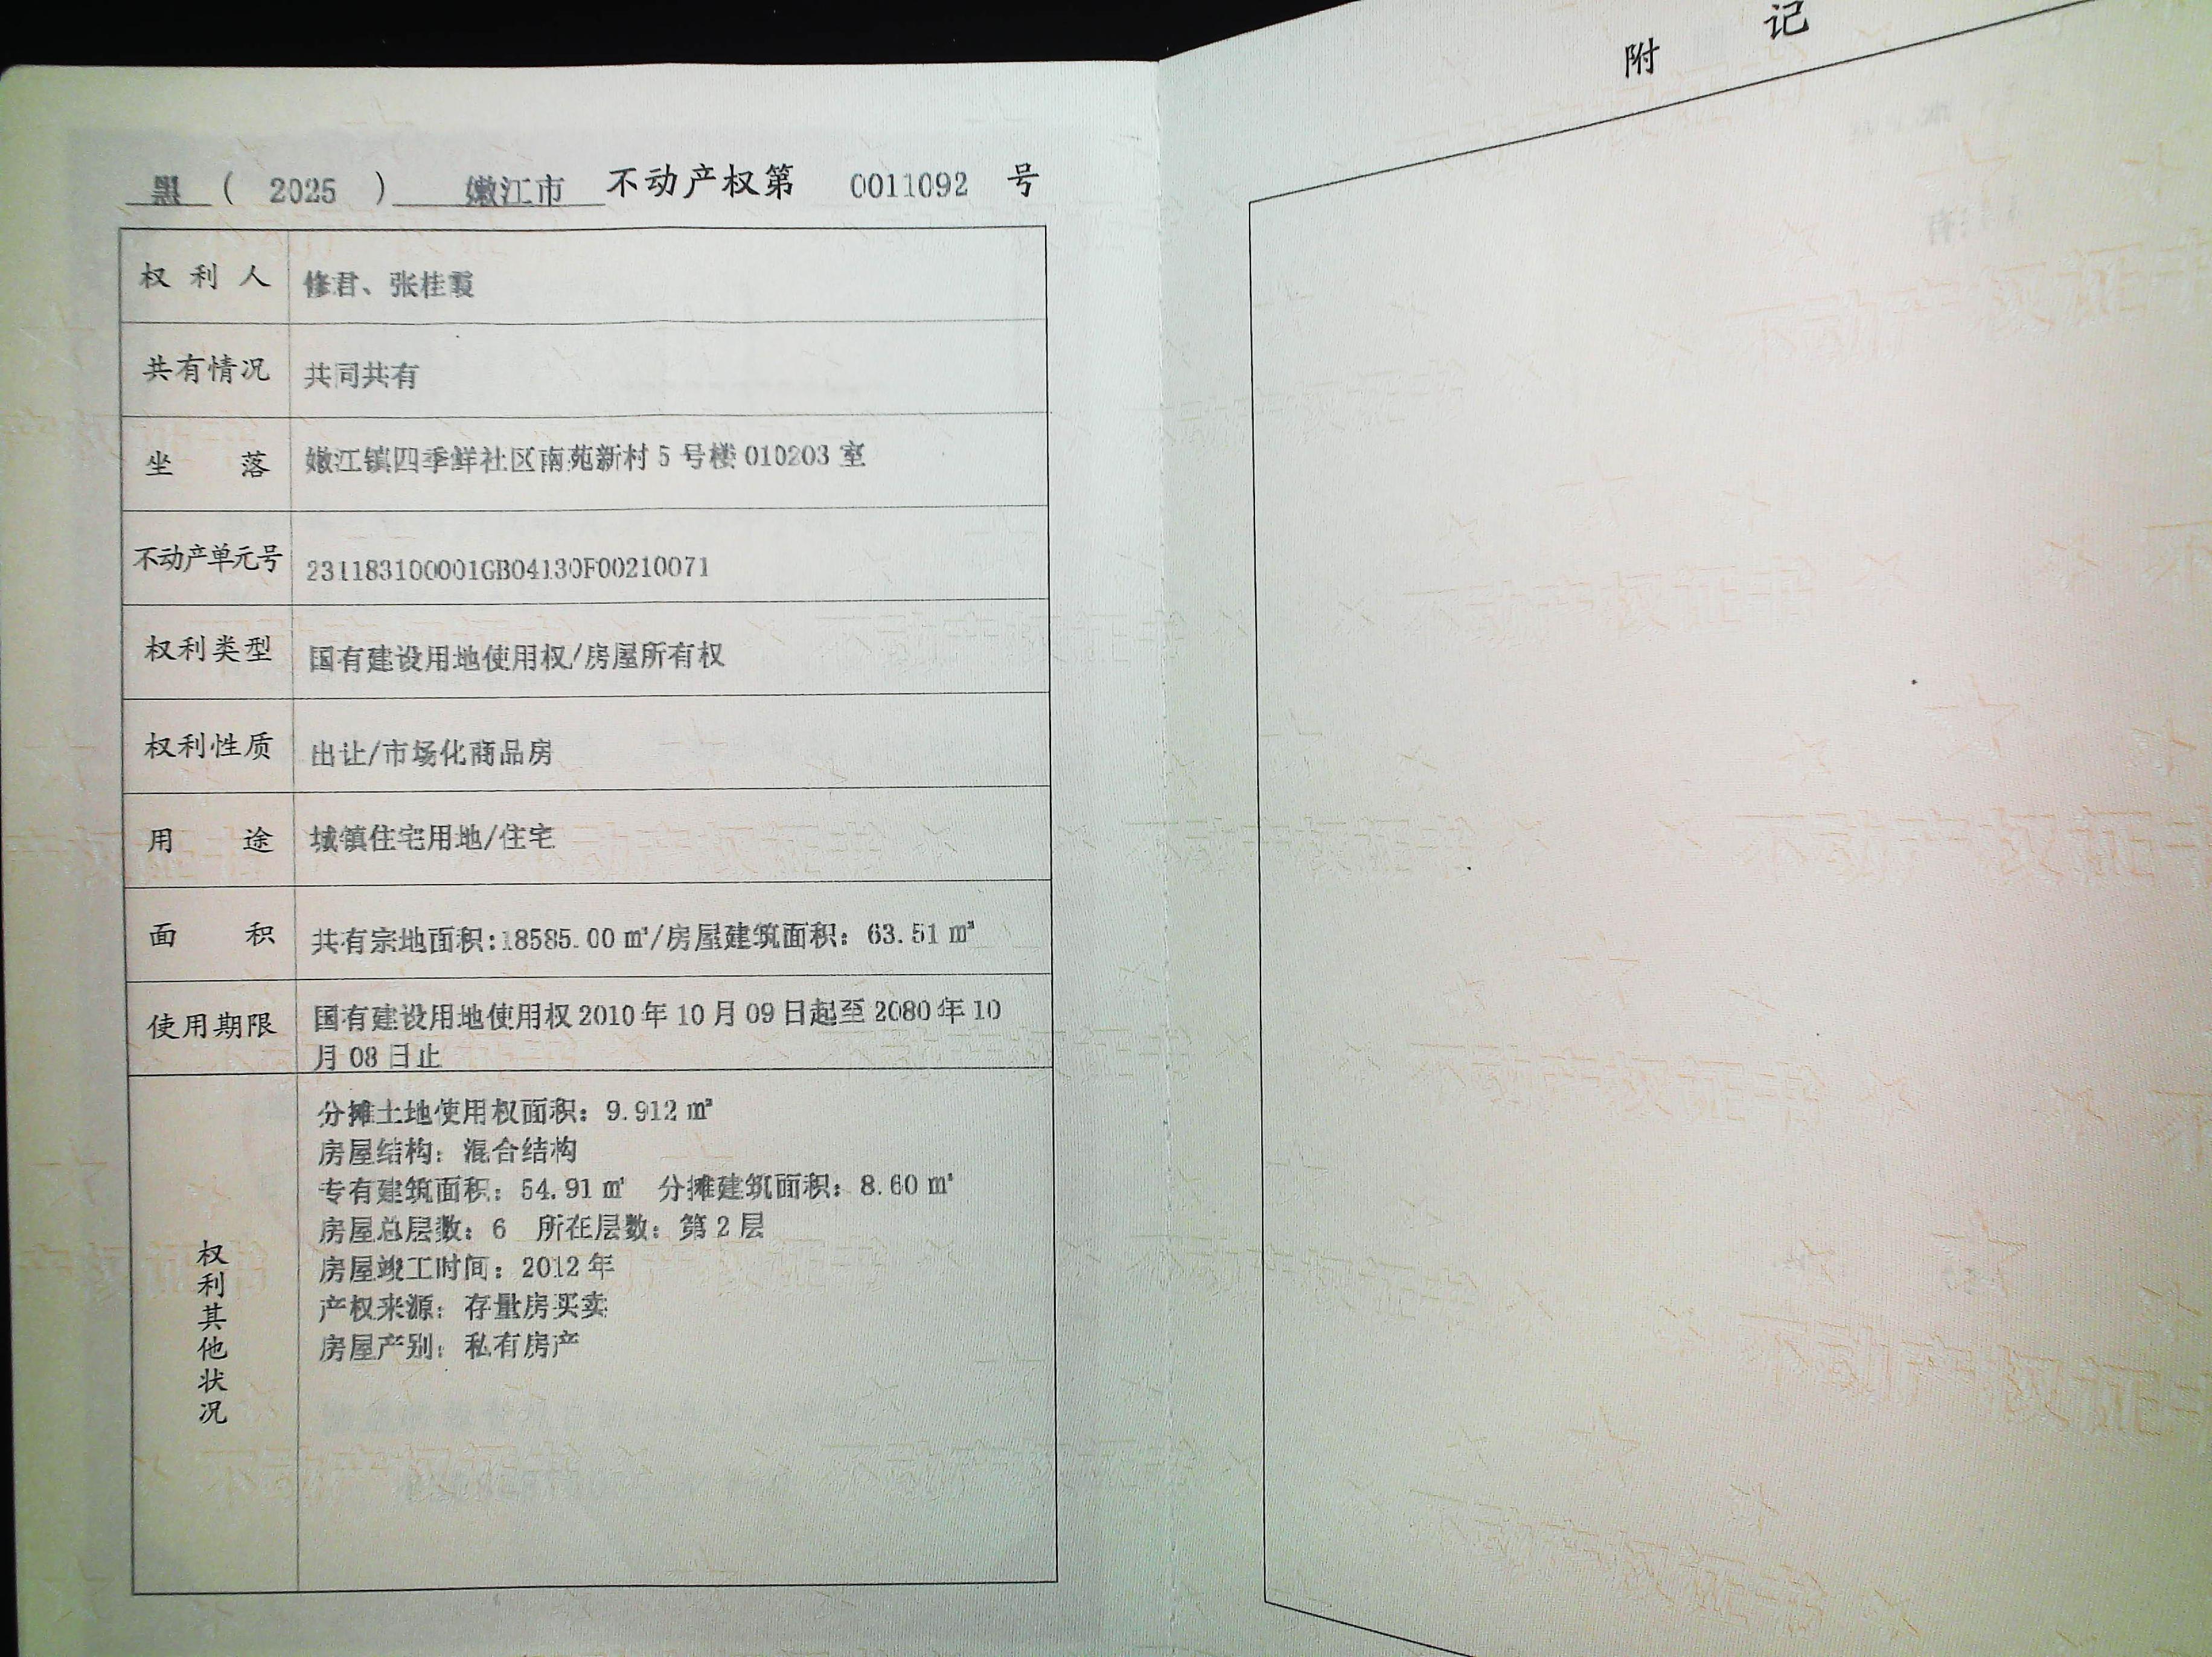 黑 ( 2025 ) 嫩江市 不动产权第 0011092 号
权利人 修君、张桂霞
共有情况 共同共有
坐落 嫩江镇四季鲜社区南苑新村 5 号楼 010203 室
不动产单元号 231183100001GB04130F00210071
权利类型 国有建设用地使用权/房屋所有权
权利性质 出让/市场化商品房
用途 城镇住宅用地/住宅
面积 共有宗地面积:18585.00 ㎡/房屋建筑面积：63.51 ㎡
使用期限 国有建设用地使用权 2010 年 10 月 09 日起至 2080 年 10
月 08 日止
权利其他状况
分摊土地使用权面积：9.912 ㎡
房屋结构：混合结构
专有建筑面积：54.91 ㎡ 分摊建筑面积：8.60 ㎡
房屋总层数：6 所在层数：第 2 层
房屋竣工时间：2012 年
产权来源：存量房买卖
房屋产别：私有房产
附记